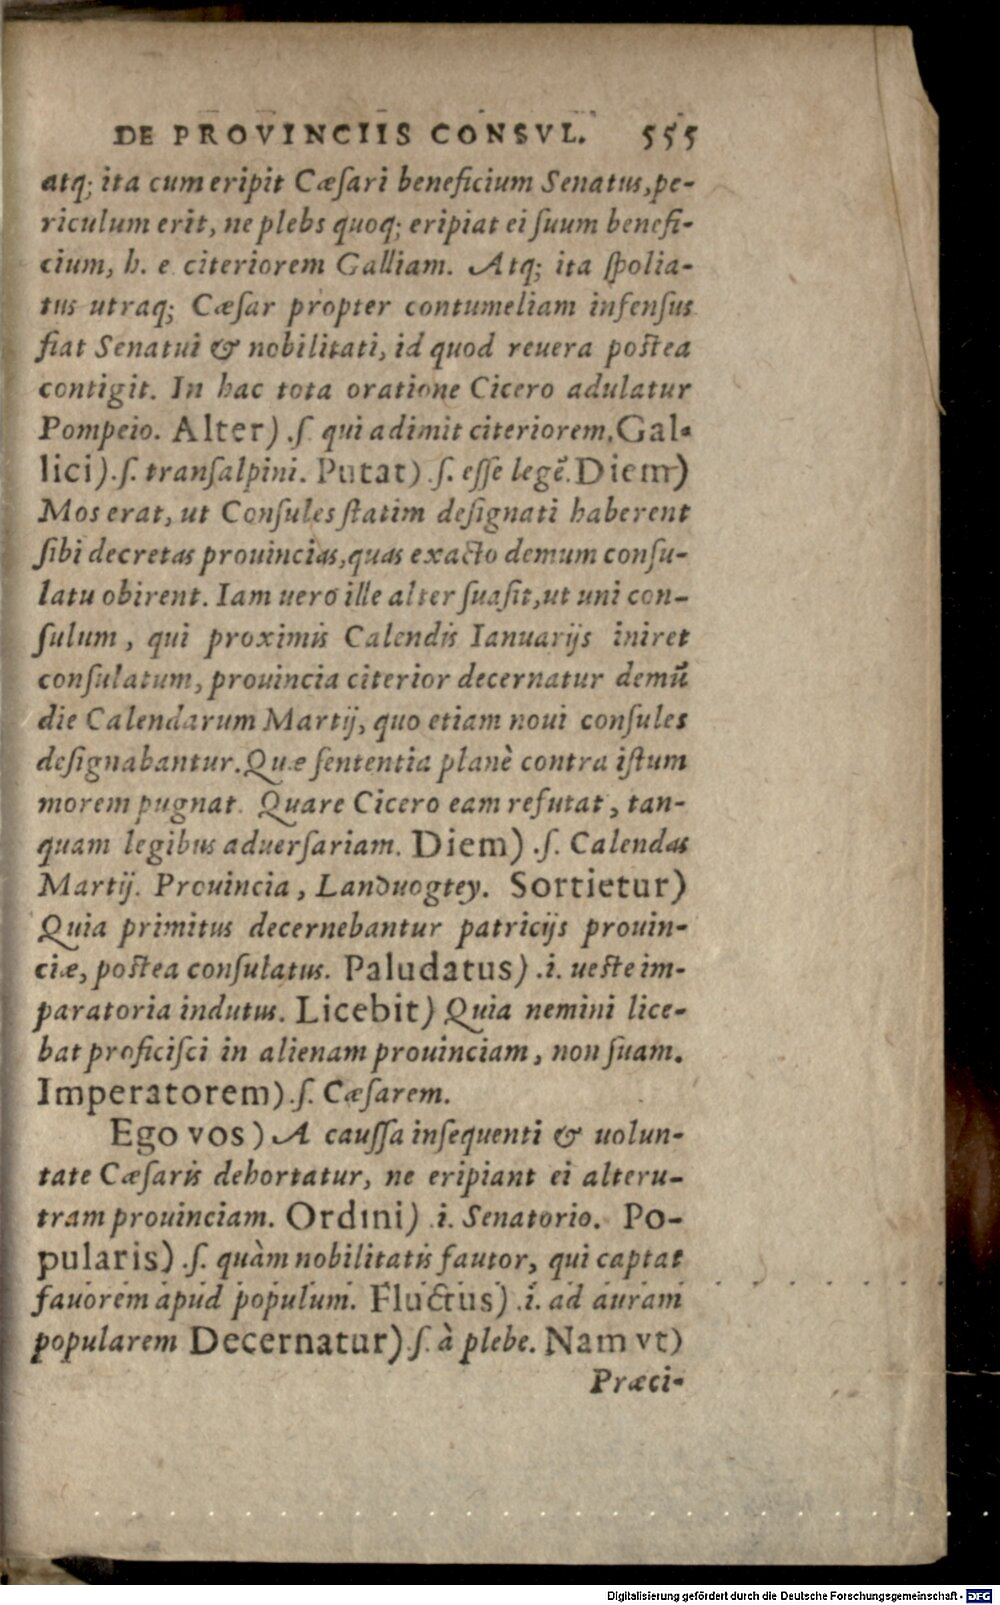 DE PROVINCIIS CONSVL. 555
atq; ita cum eripit Cæſari beneficium Senatus, pe-
riculum erit, ne plebs quoq; eripiat ei ſuum benefi-
cium, h. e citeriorem Galliam. Atq; ita ſpolia-
tus utraq; Cæſar propter contumeliam infenſus
fiat Senatui & nobilitati, id quod reuera poſtea
contigit. In hac tota oratione Cicero adulatur
Pompeio. Alter) .ſ. qui adimit citeriorem. Gal-
lici) .ſ. tranſalpini. Putat) .ſ. eſſe legē. Diem)
Mos erat, ut Conſules ſtatim deſignati haberent
ſibi decretas prouincias, quas exacto demum conſu-
latu obirent. Iam uero ille alter ſuaſit, ut uni con-
ſulum, qui proximis Calendis Ianuarijs iniret
conſulatum, prouincia citerior decernatur demū
die Calendarum Martij, quo etiam noui conſules
deſignabantur. Quæ ſententia planè contra iſtum
morem pugnat. Quare Cicero eam refutat, tan-
quam legibus aduerſariam. Diem) .ſ. Calendas
Martij. Prouincia, Landuogtey. Sortietur)
Quia primitus decernebantur patricijs prouin-
ciæ, poſtea conſulatus. Paludatus) .i. ueſte im-
paratoria indutus. Licebit) Quia nemini lice-
bat proficiſci in alienam prouinciam, non ſuam.
Imperatorem) .ſ. Cæſarem.
Ego vos) A cauſſa inſequenti & uolun-
tate Cæſaris dehortatur, ne eripiant ei alteru-
tram prouinciam. Ordini) .i. Senatorio. Po-
pularis) .ſ. quàm nobilitatis fautor, qui captat
fauorem apud populum. Fluctus) .i. ad auram
popularem Decernatur) .ſ. à plebe. Nam vt)
Præci-
Digitalisierung gefördert durch die Deutsche Forschungsgemeinschaft - DFG